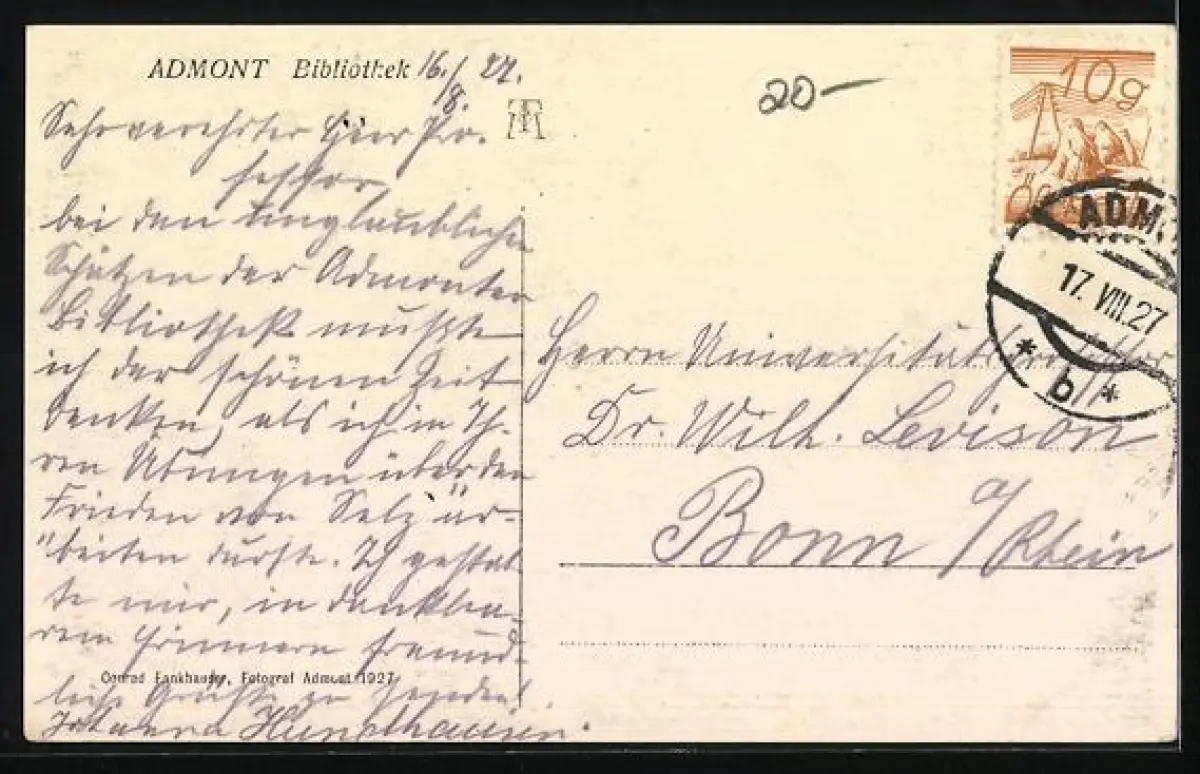 ADMONT Bibliothek 16./8. 27.
Sehr verehrter Herr Pro-
fessor,
bei den unglaublichen
Schätzen der Admonter
Bibliothek mußte
ich der schönen Zeit
denken, als ich in Ih-
ren Übungen über den
Frieden von Selz ar-
beiten durfte. Ich gestat-
te mir, in dankba-
rem Erinnern freund-
liche Grüße zu senden!
Johanna
Conrad Fankhauser, Fotograf Admont 1927
20-
10g
ADM
17. VIII. 27
* b *
Herrn Universitätsprofessor
Dr. Wilh. Levison
Bonn a/Rhein